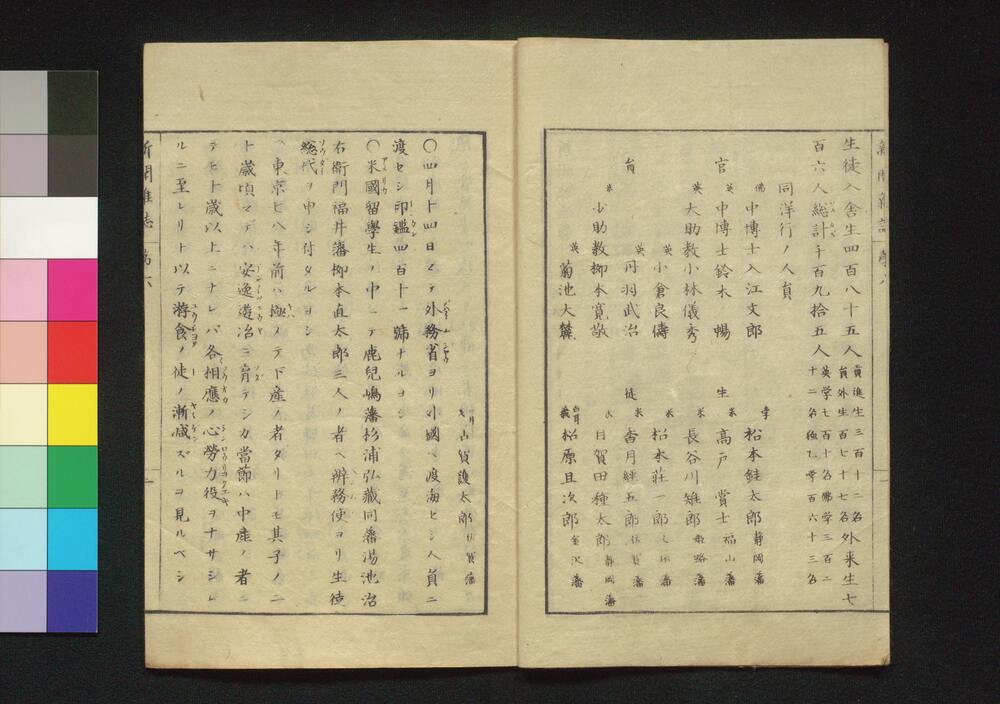 生徒入舎生四百八十五人貢進生三百十二名外来生七
員外生百七十七名
百六人総計千百九拾五人英学七百十名佛学三百二
十二名独乙学百六十三名
同洋行ノ人員
官
佛
中博士入江文郎
英
中博士鈴木 暢
英
大助教小林儀秀
英
小倉良儔
貢
英
丹羽武治
米
少助教柳本寛敬
英
菊池大麓
生
孛
松本銈太郎静岡藩
米
高戸 賞士福山藩
米
長谷川雉郎姫路藩
米
松本荘一郎
徒
米
香月経五郎佐賀藩
目賀田種太郎静岡藩
松原旦次郎金沢藩
古賀護太郎佐賀藩
〇四月十四日マテ外務省ヨリ外國ヘ渡海セシ人員ニ
渡セシ印鑑四百十一號ナルヨシ
〇米國留學生ノ中ニテ鹿兒嶋藩杉浦弘藏同藩湯池治
右衞門福井藩柳本直太郎三人ノ者ヘ辨務使ヨリ生徒
総代ヲ申シ付タルヨシ
東京七八年前ハ極メテ下産ノ者タリトモ其子ノ二
十歳頃マデハ安逸遊冶ニ育テシカ當節ハ中産ノ者ニ
テモ十歳以上ニナレバ各相應ノ心勞力役ヲナサシム
ルニ至レリト以テ游食ノ徒ノ漸减ズルヿ見ルベシ
新聞雑誌 第六